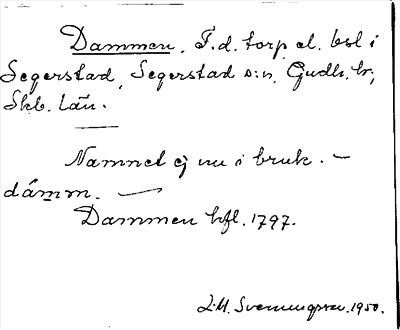 Dammen. F.d. torp el. bsl i
Segerstad, Segerstad s:n, Gudh. hr;
Skb. län.
Namnet ej nu i bruk. —
dám̱m. —
Dammen hfl. 1797.
L.M. Svenungsson. 1950.